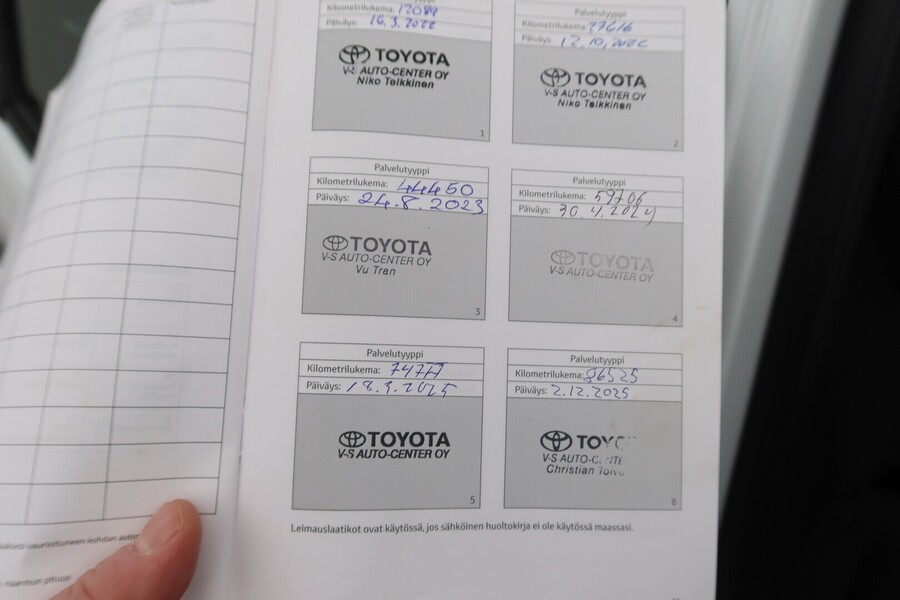 Kilometrilukema: 12089
Päiväys: 16.3.2022
TOYOTA
V-S AUTO-CENTER OY
Niko Teikkinen
1
Palvelutyyppi
Kilometrilukema: 27616
Päiväys: 12.10.
TOYOTA
V-S AUTO-CENTER OY
Niko Teikkinen
2
Palvelutyyppi
Kilometrilukema: 44450
Päiväys: 24.8.2023
TOYOTA
V-S AUTO-CENTER OY
Vu Tran
3
Palvelutyyppi
Kilometrilukema: 59706
Päiväys: 30.4.2024
TOYOTA
V-S AUTO-CENTER OY
4
Palvelutyyppi
Kilometrilukema:
Päiväys:
TOYOTA
V-S AUTO-CENTER OY
5
Palvelutyyppi
Kilometrilukema: 86525
Päiväys: 2.12.2025
TOYO
V-S AUTO-C
Christian
6
Leimauslaatikot ovat käytössä, jos sähköinen huoltokirja ei ole käytössä maassasi.